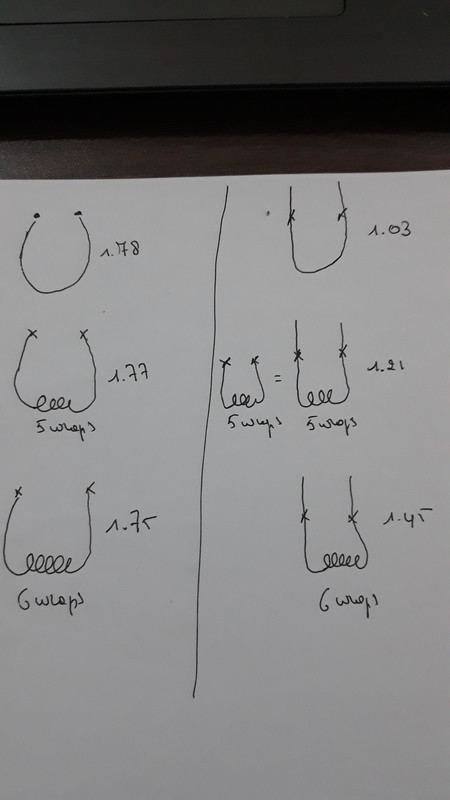 1.78
1.77
5 wraps
1.75
6 wraps
1.03
=
1.21
5 wraps
5 wraps
1.45
6 wraps